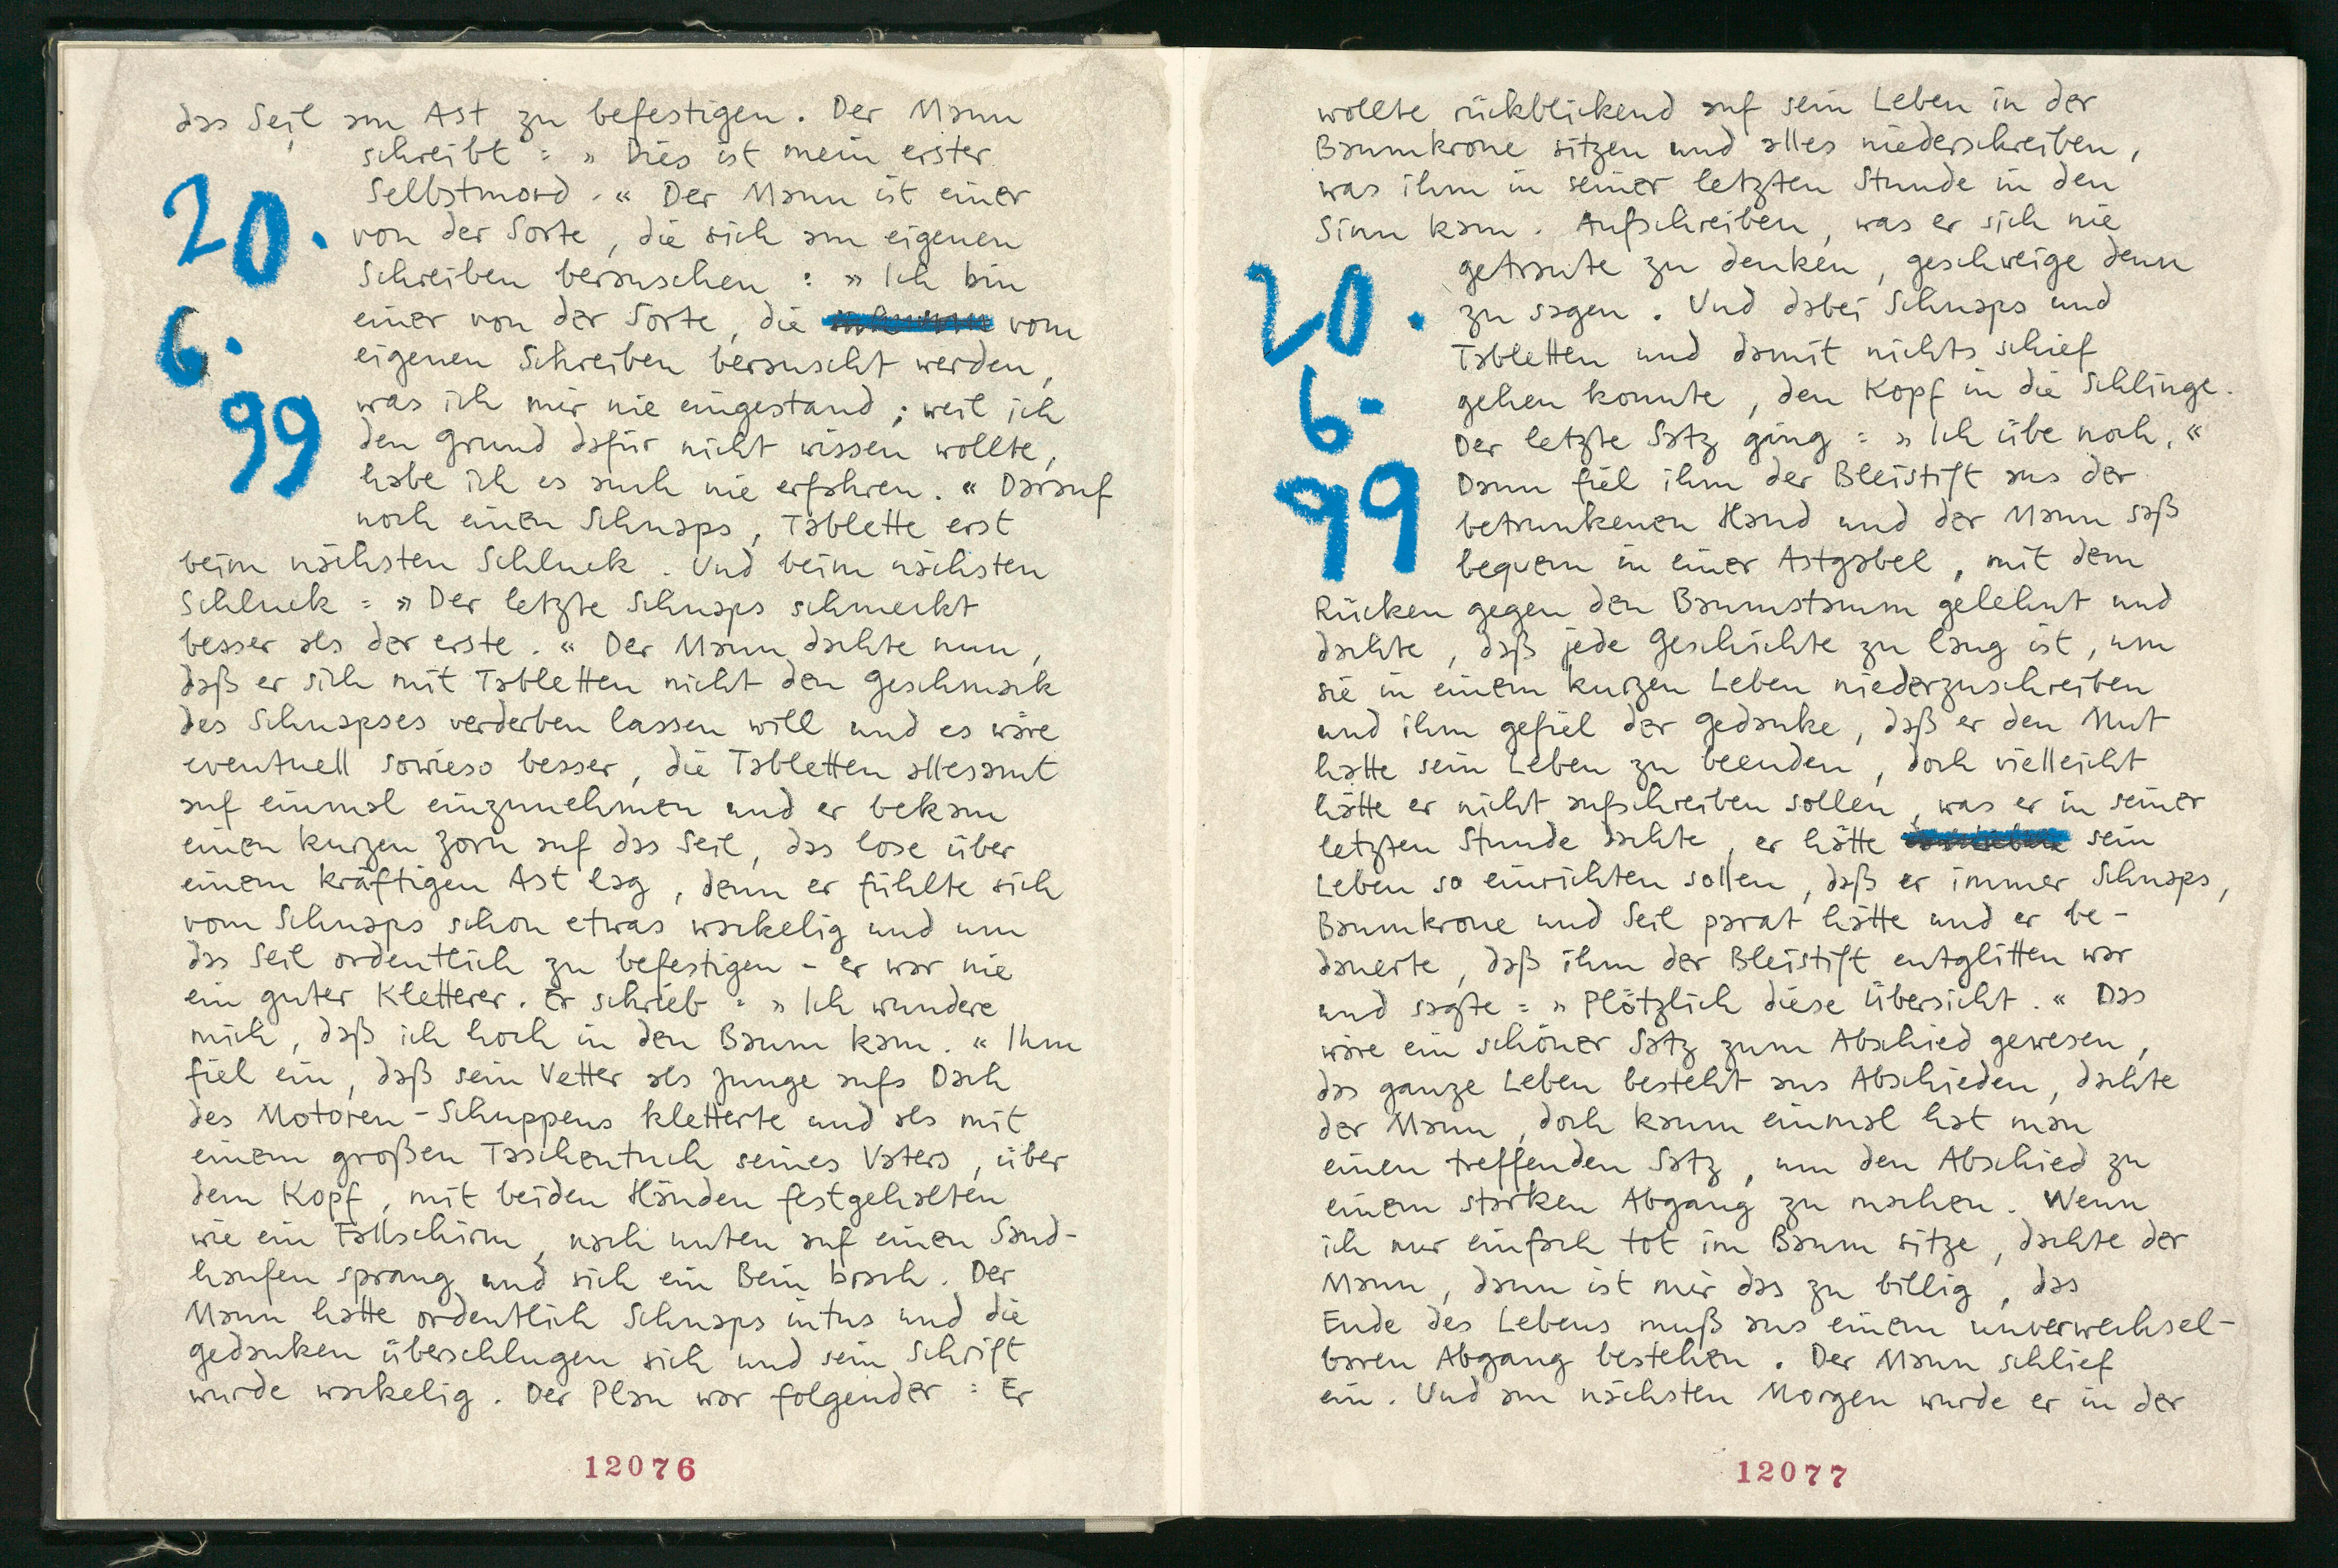 das Seil am Ast zu befestigen. Der Mann
schreibt: » Dies ist mein erster
Selbstmord.« Der Mann ist einer
von der Sorte, die sich am eigenen
Schreiben berauschen: » Ich bin
einer von der Sorte, die vom
eigenen Schreiben berauscht werden,
was ich mir nie eingestand; weil ich
den Grund dafür nicht wissen wollte,
habe ich es auch nie erfahren.« Darauf
noch einen Schnaps, Tablette erst
beim nächsten Schluck. Und beim nächsten
Schluck: » Der letzte Schnaps schmeckt
besser als der erste.« Der Mann dachte nun,
daß er sich mit Tabletten nicht den Geschmack
des Schnapses verderben lassen will und es wäre
eventuell sowieso besser, die Tabletten allesamt
auf einmal einzunehmen und er bekam
einen kurzen Zorn auf das Seil, das lose über
einem kräftigen Ast lag, denn er fühlte sich
vom Schnaps schon etwas wackelig und um
das Seil ordentlich zu befestigen - er war nie
ein guter Kletterer. Er schrieb: » Ich wundere
mich, daß ich hoch in den Baum kam.« Ihm
fiel ein, daß sein Vetter als Junge aufs Dach
des Motoren-Schuppens kletterte und als mit
einem großen Taschentuch seines Vaters, über
dem Kopf, mit beiden Händen festgehalten
wie ein Fallschirm, nach unten auf einen Sand-
haufen sprang und sich ein Bein brach. Der
Mann hatte ordentlich Schnaps intus und die
Gedanken überschlugen sich und sein Schrift
wurde wackelig. Der Plan war folgender: Er
20.
6.
99
12076
wollte rückblickend auf sein Leben in der
Baumkrone sitzen und alles niederschreiben,
was ihm in seiner letzten Stunde in den
Sinn kam. Aufschreiben, was er sich nie
getraute zu denken, geschweige denn
zu sagen. Und dabei Schnaps und
Tabletten und damit nichts schief
gehen konnte, den Kopf in die Schlinge.
Der letzte Satz ging: » Ich übe noch.«
Dann fiel ihm der Bleistift aus der
betrunkenen Hand und der Mann saß
bequem in einer Astgabel, mit dem
Rücken gegen den Baumstamm gelehnt und
dachte, daß jede Geschichte zu lang ist, um
sie in einem kurzen Leben niederzuschreiben
und ihm gefiel der Gedanke, daß er den Mut
hatte sein Leben zu beenden, doch vielleicht
hätte er nicht aufschreiben sollen, was er in seiner
letzten Stunde dachte, er hätte sein
Leben so einrichten sollen, daß er immer Schnaps,
Baumkrone und Seil parat hätte und er be-
dauerte, daß ihm der Bleistift entglitten war
und sagte: » Plötzlich diese Übersicht.« Das
wäre ein schöner Satz zum Abschied gewesen,
das ganze Leben besteht aus Abschieden, dachte
der Mann, doch kaum einmal hat man
einen treffenden Satz, um den Abschied zu
einem starken Abgang zu machen. Wenn
ich nur einfach tot im Baum sitze, dachte der
Mann, dann ist mir das zu billig, das
Ende des Lebens muß aus einem unverwechsel-
baren Abgang bestehen. Der Mann schlief
ein. Und am nächsten Morgen wurde er in der
20.
6.
99
12077